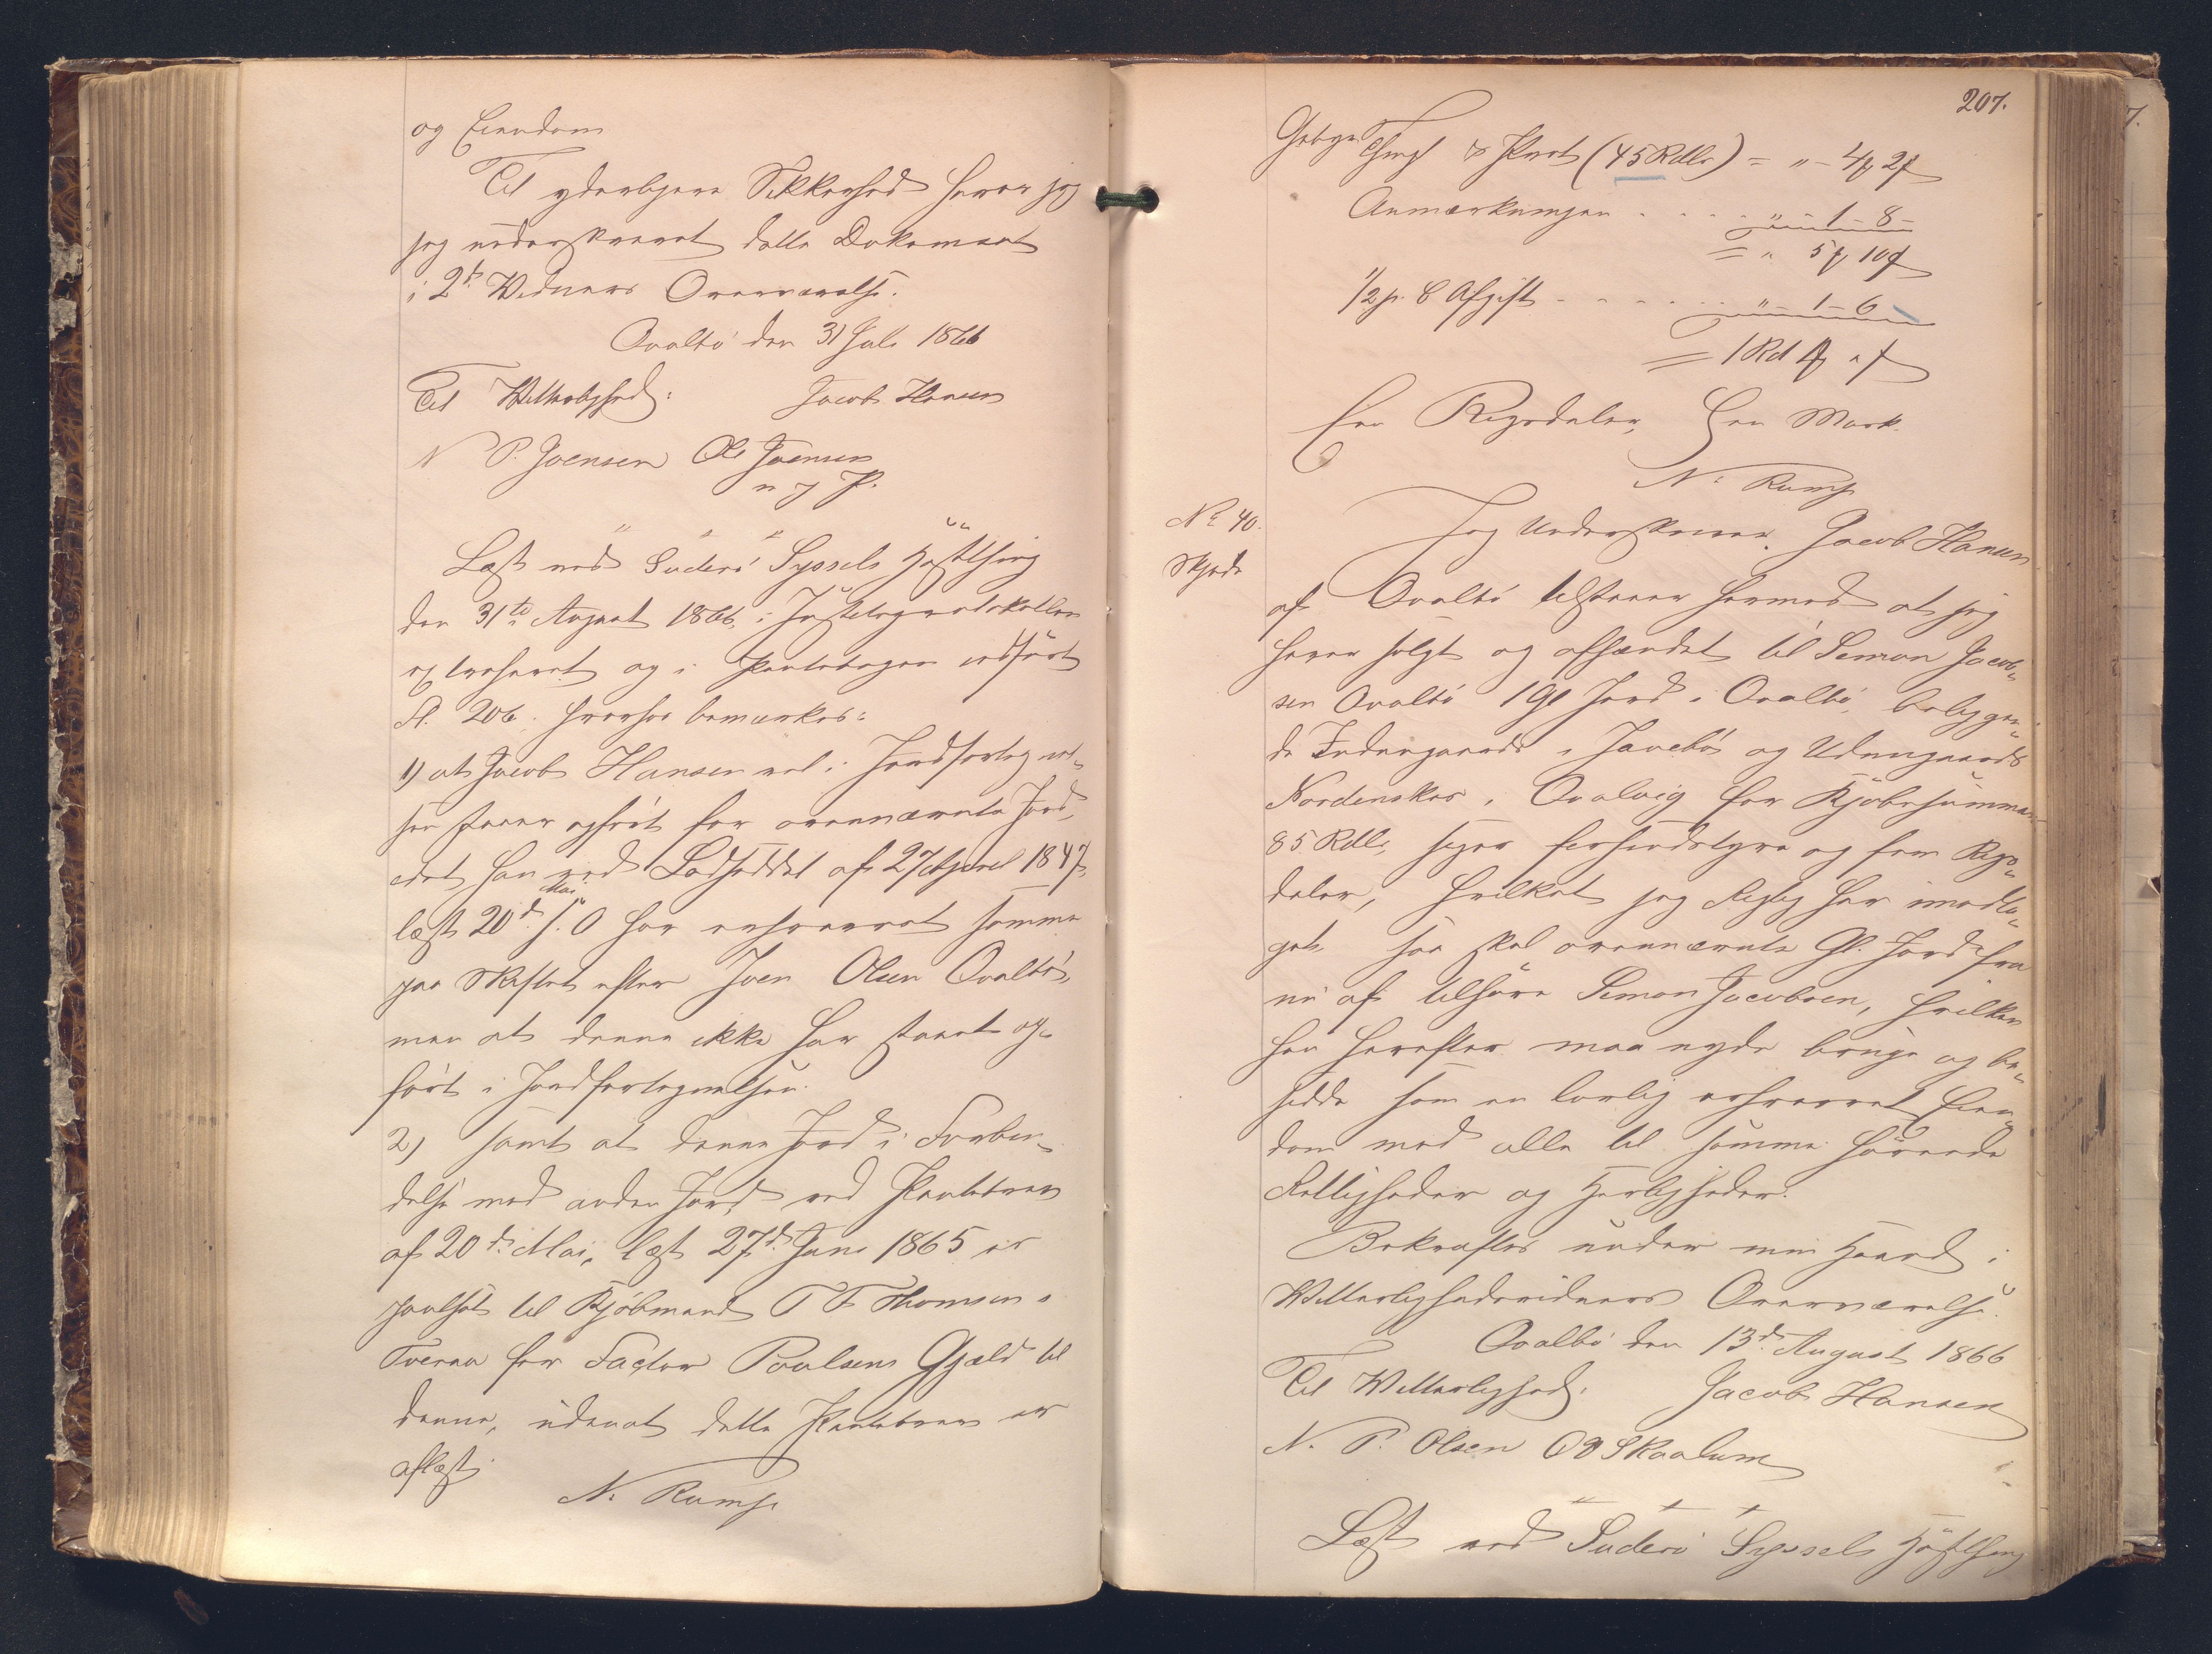 og Eiendom
Til yderligere Sikkerhed haver jeg
jeg underskrevet dette Dokument
i 2de Vidners Overværelse.
Qvalbö den 31 Juli 1866
Til Vitterlighed: Jacob Hansen
N P. Joensen Ole Joensen
m f P.
Læst ved Suderö Syssels Höstthing
den 31te August 1866, i Justitsprotokollen
extraheret og i Pantebogen indfört
Fl. 206, hvorhos bemærkes:
1) at Jacob Hansen vel i Jordfortegnel-
sen staaer opfört for ovennævnte Jord,
idet han ved Lodseddel af 27 April 1847,
læst 20de Mai s. A. har erhvervet samme
paa Skiftet efter Joen Olsen Qvalbö,
men at denne ikke har staaet op-
fört i Jordfortegnelsen.
2) samt at denne Jord i Forbin-
delse med anden Jord ved Pantebrev
af 20de Mai, læst 27de Juni 1865 er
pantsat til Kjöbmand T. F. Thomsen i
Tveraa for Factor Poulsens Gjæld til
denne, uden at dette Pantebrev er
aflæst.
N. Ramp
207.
Gebyr Thingl & Prot (45 Rdlr) = " - 4 ꝟ 2 ẞ
Anmærkningen . . . . " - 1 - 8 -
= " 5 ꝟ 10 ẞ
1/2 p. C Afgift - - - - - " - 1 - 6
= 1 Rd 1 ꝟ " ẞ
Een Rigsdaler, Een Mark.
N. Ramp
No 40.
Skjöde
Jeg Underskrevne Jacob Hansen
af Qvalbö tilstaaer hermed at jeg
haver solgt og afhændet til Simon Jacob-
sen Qvalbö 1 Gl Jord i Qvalbö, beliggen-
de Indengaards i Janebö og Udengaards
Nordenskov i Qvalvig for Kjöbesummen
85 Rdlr, siger firsindstyve og fem Rigs-
daler, hvilket jeg rigtig har imodta-
get, saa skal ovennævnte Gl. Jord fra
nu af tilhöre Simon Jacobsen, hvilken
han herefter maa nyde bruge og be-
sidde som en lovlig erhvervet Eien-
dom med alle til samme hörende
Rettigheder og Herligheder.
Bekræftes under min Haand i
Vitterlighedsvidners Overværelse.
Qvalbö den 13de August 1866
Til Vitterlighed: Jacob Hansen
N. P. Olsen O D Skaalum
Læst ved Suderö Syssels Höstthing